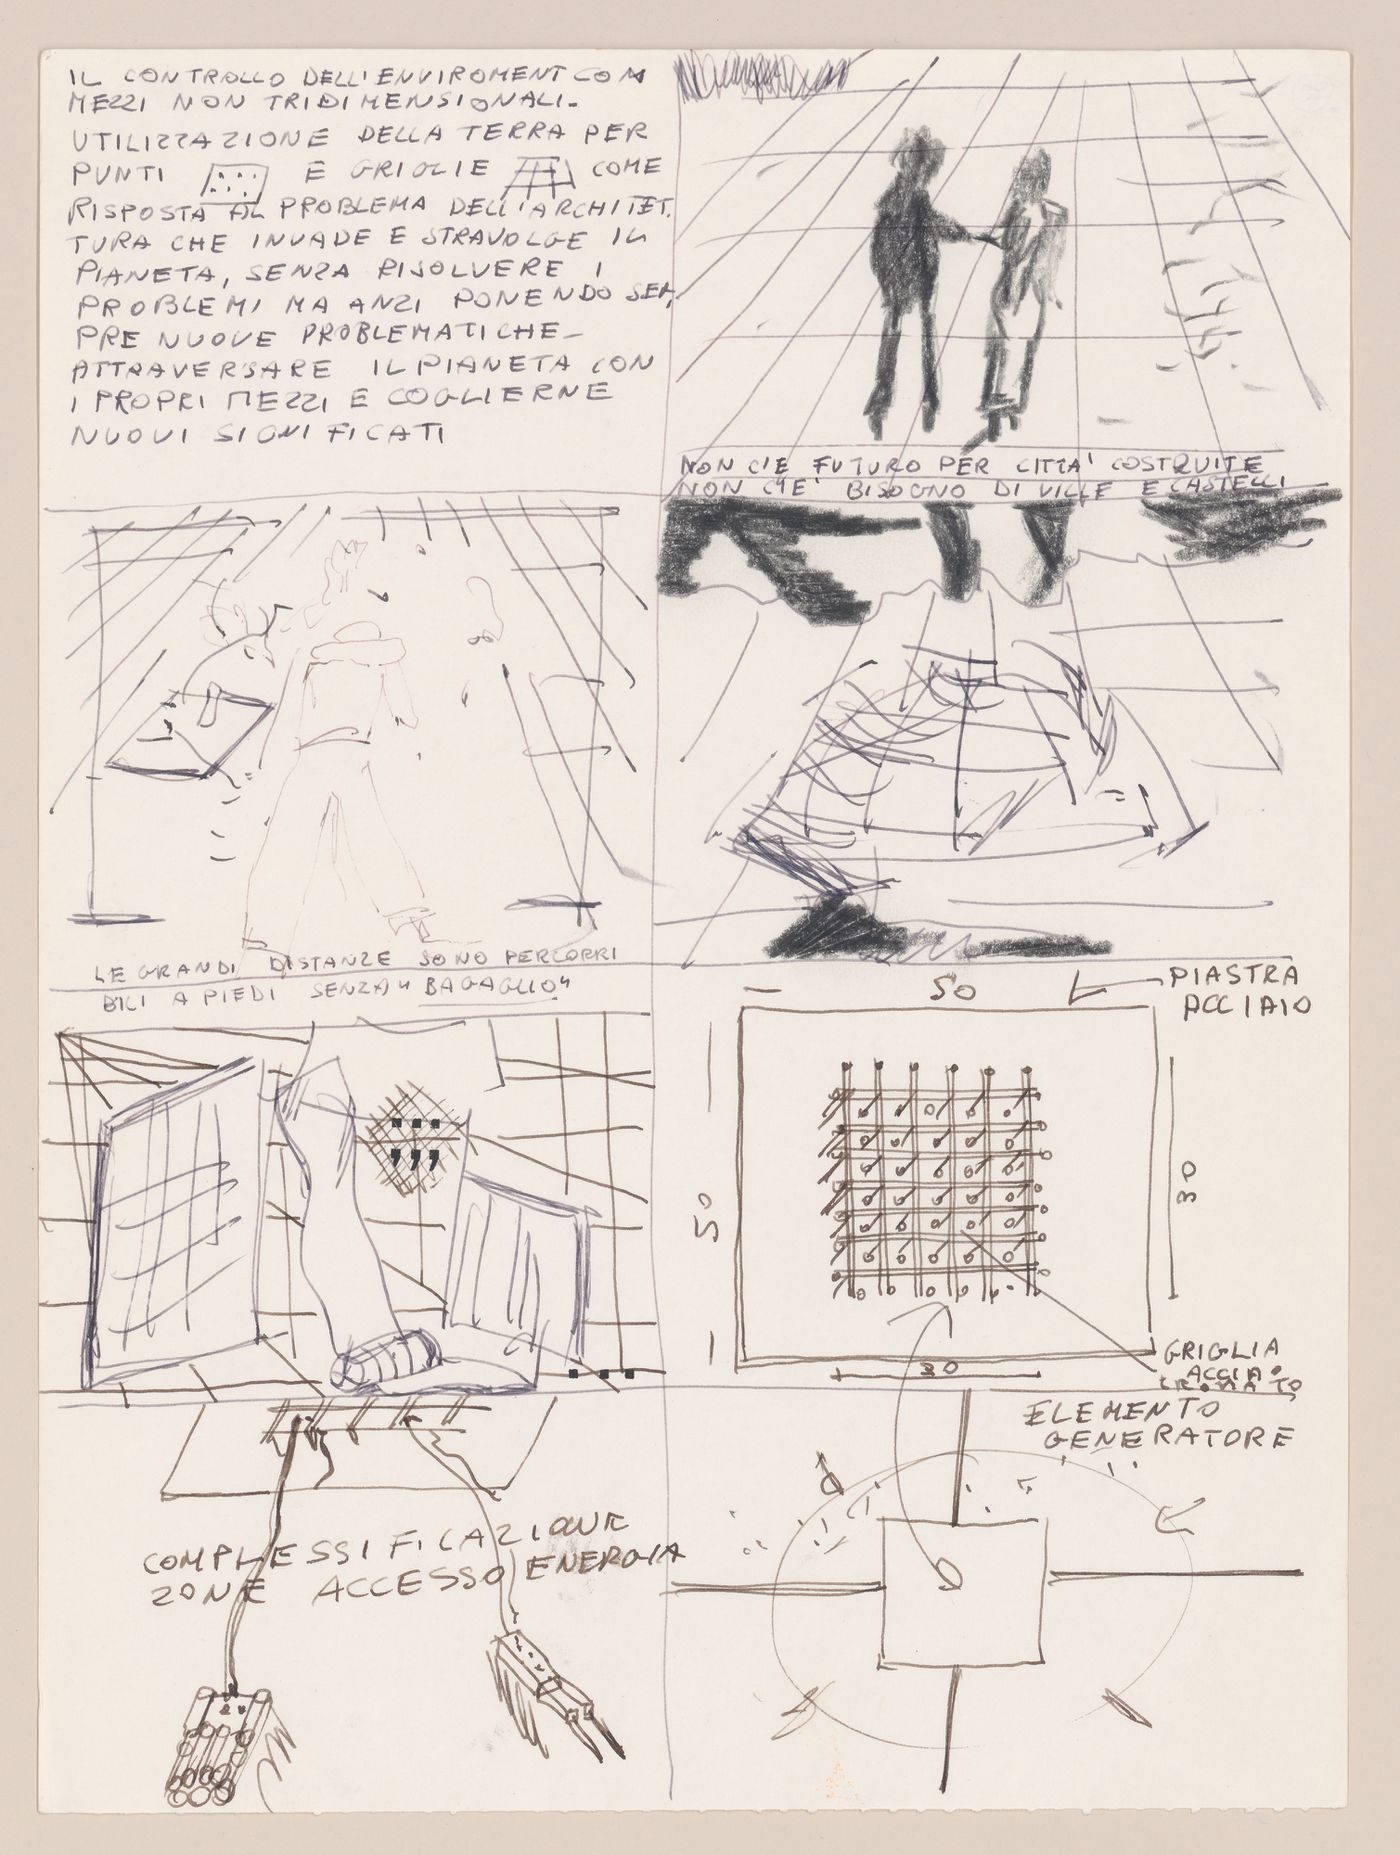 IL CONTROLLO DELL'ENVIROMENT CON
MEZZI NON TRIDIMENSIONALI-
UTILIZZAZIONE DELLA TERRA PER
PUNTI E GRIGLIE COME
RISPOSTA AL PROBLEMA DELL'ARCHITET.
TURA CHE INVADE E STRAVOLGE IL
PIANETA, SENZA RISOLVERE I
PROBLEMI MA ANZI PONENDO SEM,
PRE NUOVE PROBLEMATICHE-
ATTRAVERSARE IL PIANETA CON
I PROPRI MEZZI E COGLIERNE
NUOVI SIGNIFICATI
NON C'E FUTURO PER CITTA' COSTRUITE
NON C'E' BISOGNO DI VILLE E CASTELLI
LE GRANDI DISTANZE SONO PERCORRI
BILI A PIEDI SENZA "BAGAGLIO"
50
PIASTRA
ACCIAIO
50
30
30
GRIGLIA
ACCIAIO
CROMATO
COMPLESSIFICAZIONE
ZONE ACCESSO ENERGIA
ELEMENTO
GENERATORE